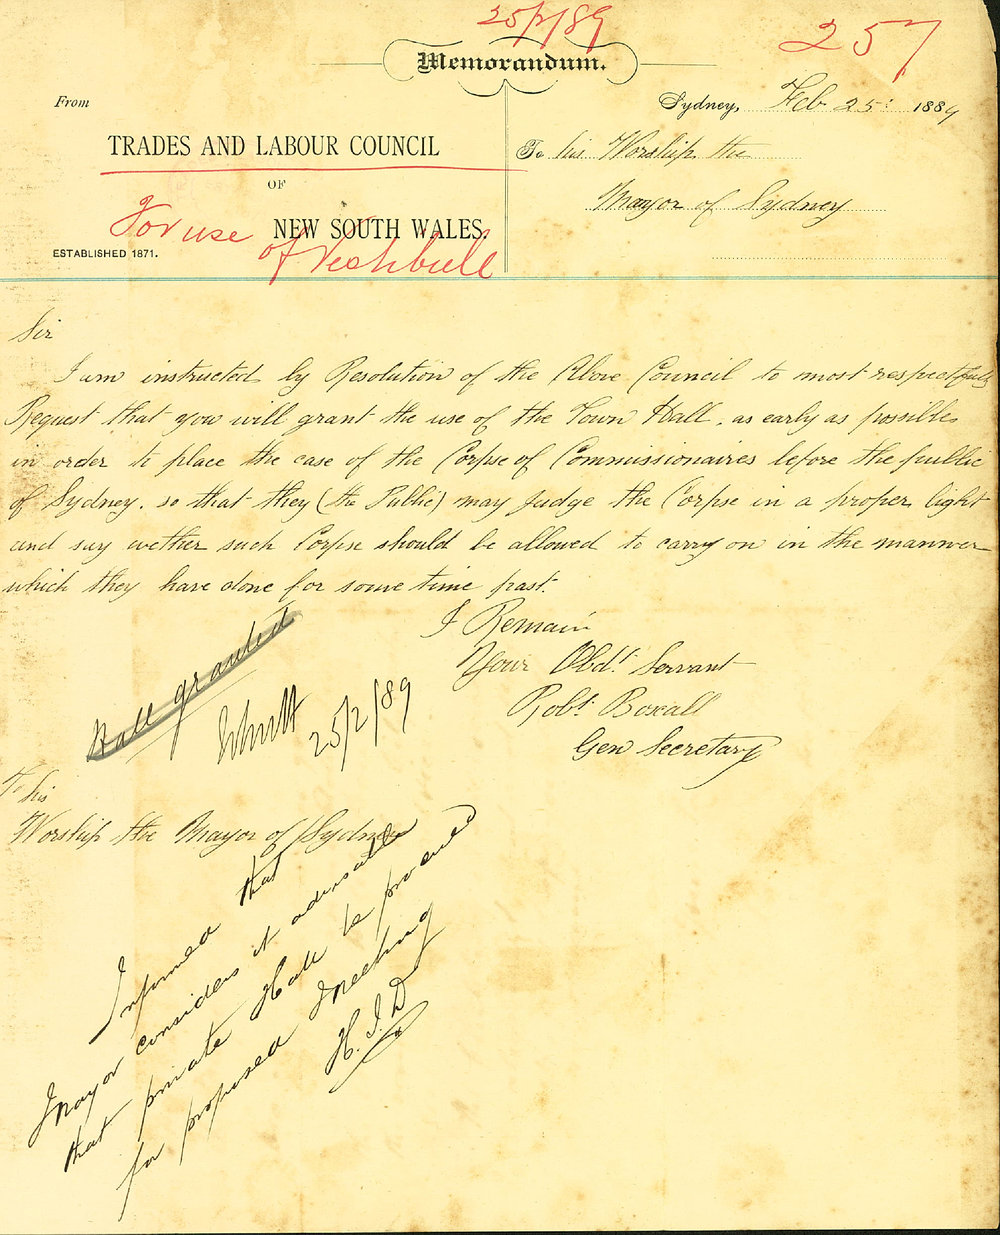 25/2/89
257
Memorandum.
From
Sydney, Feb 25: 1889
TRADES AND LABOUR COUNCIL
OF
NEW SOUTH WALES.
ESTABLISHED 1871.
For use
of
To his Worship the
Mayor of Sydney
Sir
I am instructed by Resolution of the Above Council to most respectfully
Request that you will grant the use of the Town Hall, as early as possible
in order to place the case of the Corpse of Commissionaires before the public
of Sydney. so that they (the Public) may judge the Corpse in a proper light
and say wether such Corpse should be allowed to carry on in the manner
which they have done for some time past.
I Remain
Your Obdt Servant
Robt Boxall
Gen Secretary
Hall granted
25/2/89
To his
Worship the Mayor of Sydney
Informed that
Mayor considers it advisable
that private Hall be procured
for proposed Meeting
H. J. D